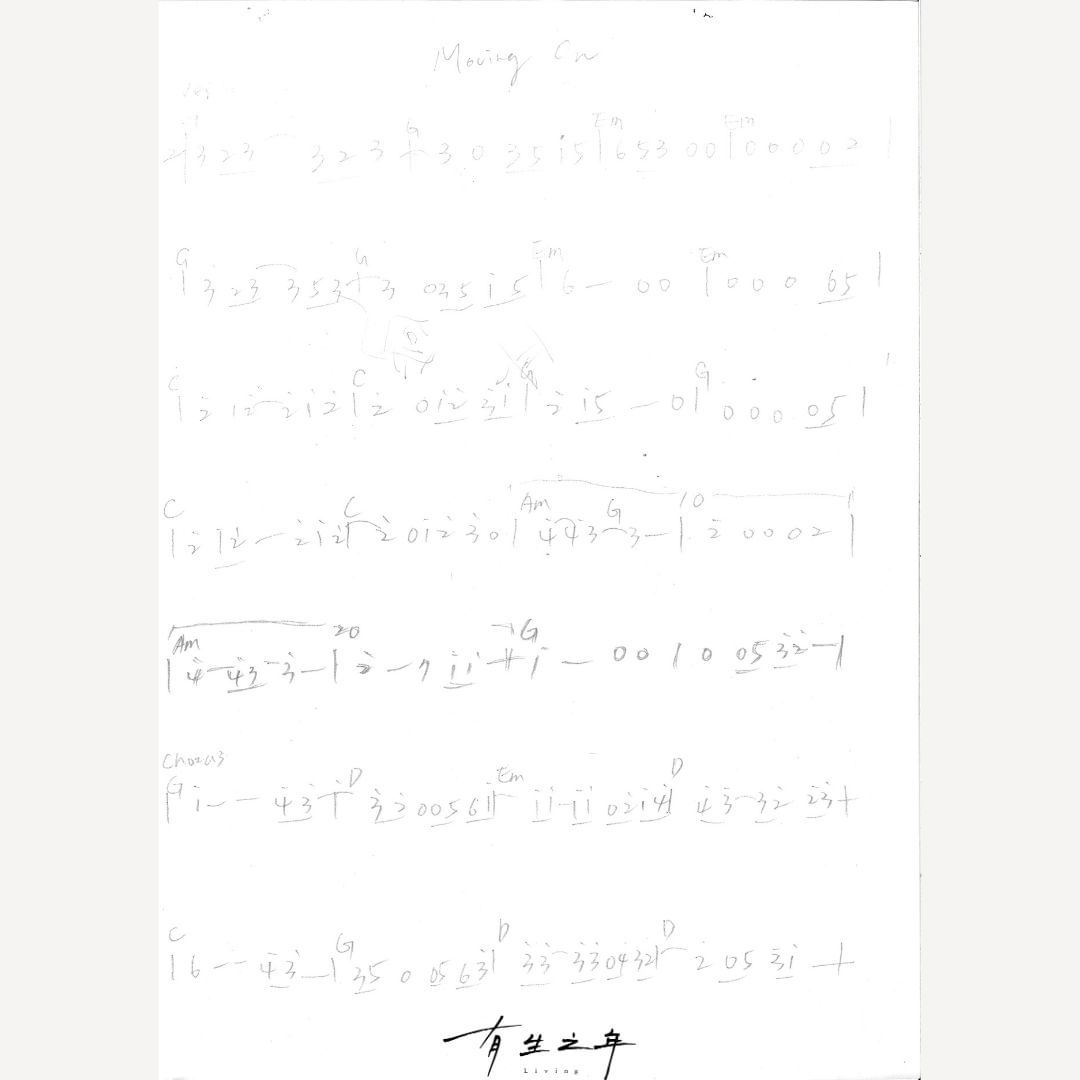 Moving On
Ver
G Em Em
2|3 23 323 + 3 0 35 i5 | 653 00 | 0 0 0 02 |
G G Em Em
| 3 23 353 + 3 035 i5 | 6 – 00 | 0 0 0 65 |
C C G G
| 2 12 212 | 2 012 31 | 2 i5 – 0 | 0 0 0 05 |
C C Am G 10
| 2 12 – 212 | 2 012 30 | 443 3 – | 2 0002 |
Am 20 G
| 4 – 43 3 – | 2 – 7 ii + i – 00 | 0 05 32 – |
Chorus
G D Em D
| i – – 43 + 32 00561 | ii ii 02i4 | 43 32 23 +
C G D D
| 6 – – 43 – | 35 0 0563 | 33 330432 | 2 05 3i +
有生之年
Living